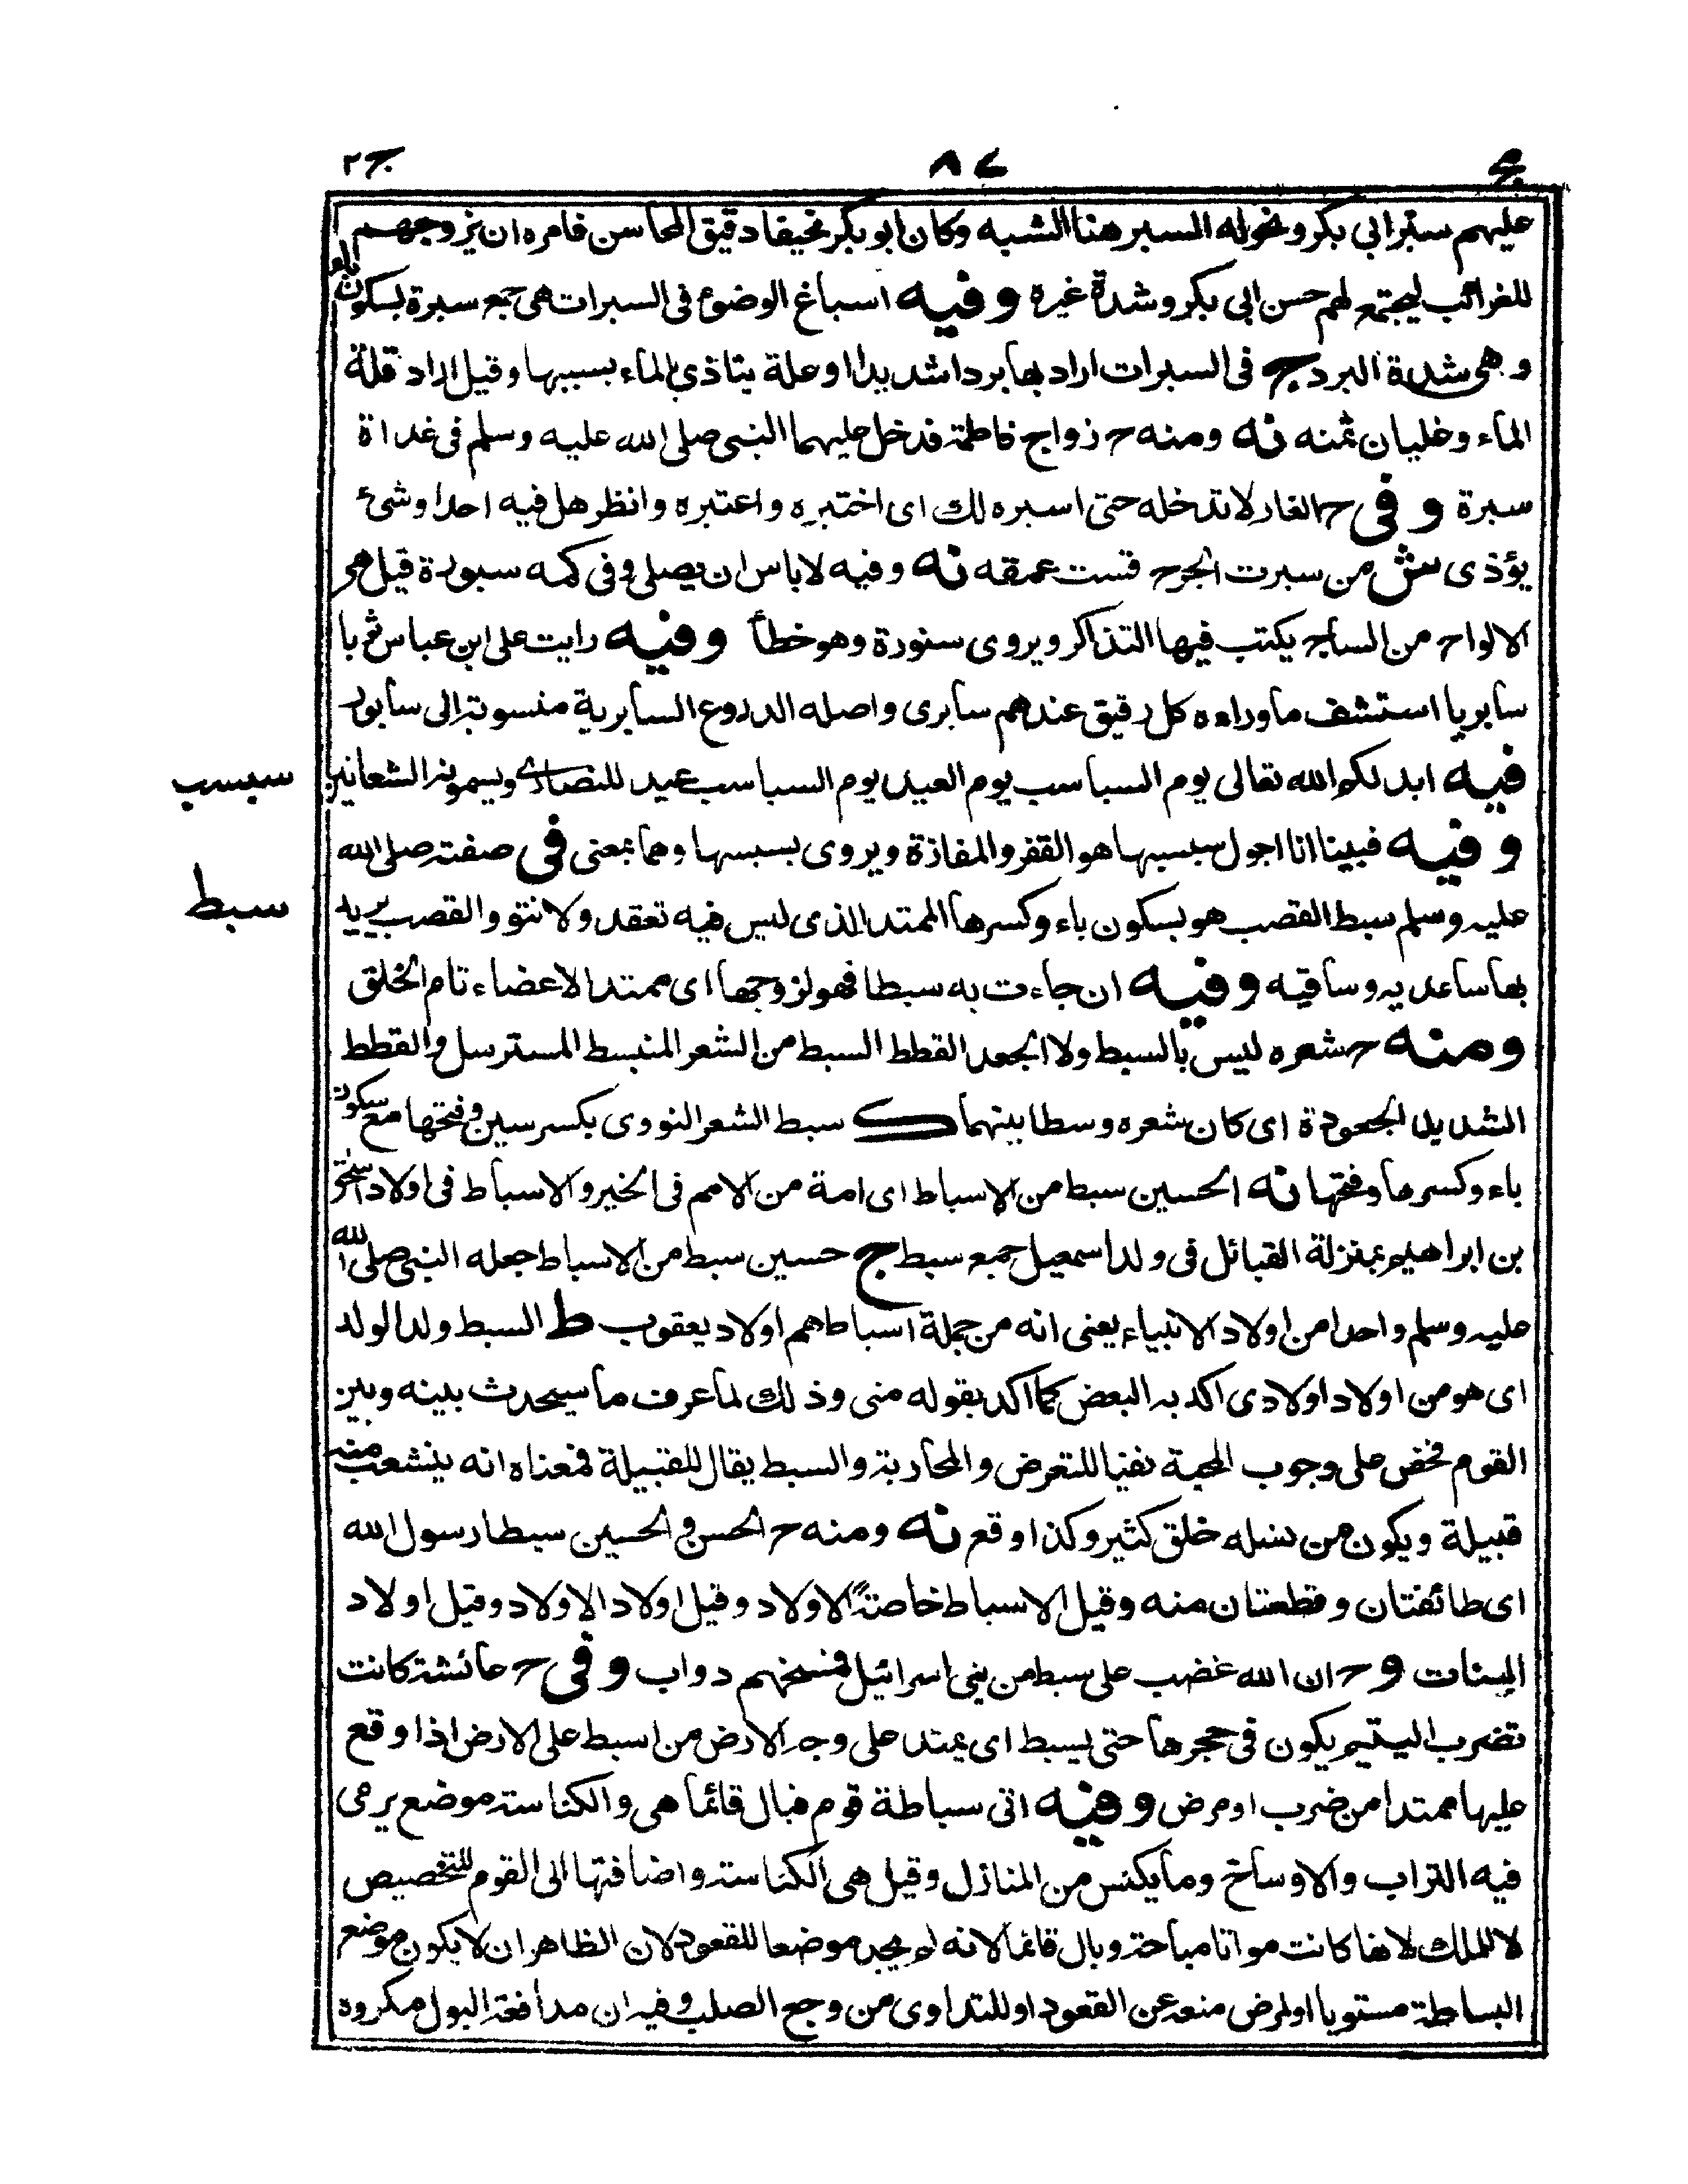 ج ٢
٨٧
عليهم سبر ابى بكر ونحوله السبر هنا الشبه وكان ابو بكر نحيفا دقيق المحاسن فامره ان يزوجهم
للغرائب ليجتمع لهم حسن ابى بكر وشدة غيره وفيه اسباغ الوضوء فى السبرات هى جمع سبرة بسكون باء
وهى شدة البرد ج فى السبرات اراد بها بردا شديدا او علة يتاذى بالماء بسببها وقيل اراد قلة
الماء وغليان ثمنه نه ومنه ح زواج فاطمة فدخل عليهما النبى صلى الله عليه وسلم فى غداة
سبرة وفى ح الغار لا تدخله حتى اسبره لك اى اختبره واعتبره وانظر هل فيه احدا وشئ
يؤذى ش من سبرت الجرح قست عمقه نه وفيه لا باس ان يصلى وفى كمه سبورة قيل هى
الالواح من الساج يكتب فيها التذاكر ويروى ستورة وهو خطأ وفيه رايت على ابن عباس ثوبا
سابريا استشف ما وراءه كل رقيق عندهم سابرى واصله الدروع السابرية منسوبة الى سابور
سبسب
فيه ابدلكم الله تعالى يوم السباسب يوم العيد يوم السباسب عيد للنصارى ويسمونه الشعانين
وفيه فبينا انا اجول سبسبها هو القفر والمفازة ويروى بسبسها وهما بمعنى فى صفته صلى الله
سبط
عليه وسلم سبط القصب هو بسكون باء وكسرها الممتد الذى ليس فيه تعقد ولا نتو والقصب يريد
بها ساعديه وساقيه وفيه ان جاءت به سبطا فهو لزوجها اى ممتد الاعضاء تام الخلق
ومنه ح شعره ليس بالسبط ولا الجعد القطط السبط من الشعر المنبسط المسترسل والقطط
الشديد الجعودة اى كان شعره وسطا بينهما ك سبط الشعر النووى بكسر سين وفتحها مع سكون
باء وكسرها وفتحها نه الحسين سبط من الاسباط اى امة من الامم فى الخير والاسباط فى اولاد اسحق
بن ابراهيم بمنزلة القبائل فى ولد اسمعيل جمع سبط ج حسين سبط من الاسباط جعله النبى صلى الله
عليه وسلم واحدا من اولاد الانبياء يعنى انه من جملة اسباط هم اولاد يعقوب ط السبط ولد الولد
اى هو من اولاد اولادى اكد به البعض كما اكد بقوله منى وذلك لما عرف ما سيحدث بينه وبين
القوم فخص على وجوب المحبة نفيا للتعرض والمحاربة والسبط يقال للقبيلة فمعناه انه ينشعب منه
قبيلة ويكون من نسله خلق كثير وكذا وقع نه ومنه ح الحسن والحسين سبطا رسول الله
اى طائفتان وقطعتان منه وقيل الاسباط خاصة الاولاد وقيل اولاد الاولاد وقيل اولاد
البنات وح ان الله غضب على سبط من بنى اسرائيل فمسخهم دواب وفى ح عائشة كانت
تضرب اليتيم يكون فى حجرها حتى يسبط اى يمتد على وجه الارض من اسبط على الارض اذا وقع
عليها ممتدا من ضرب او مرض وفيه اتى سباطة قوم فبال قائما هى والكناسة موضع يرمى
فيه التراب والاوساخ وما يكنس من المنازل وقيل هى الكناسة واضافتها الى القوم للتخصيص
لا للملك لانها كانت مواتا مباحة وبال قائما لانه لم يجد موضعا للقعود لان الظاهر ان لا يكون موضع
البساطة مستويا او لمرض منعه عن القعود او للتداوى من وجع الصلب وفيه ان مدافعة البول مكروه